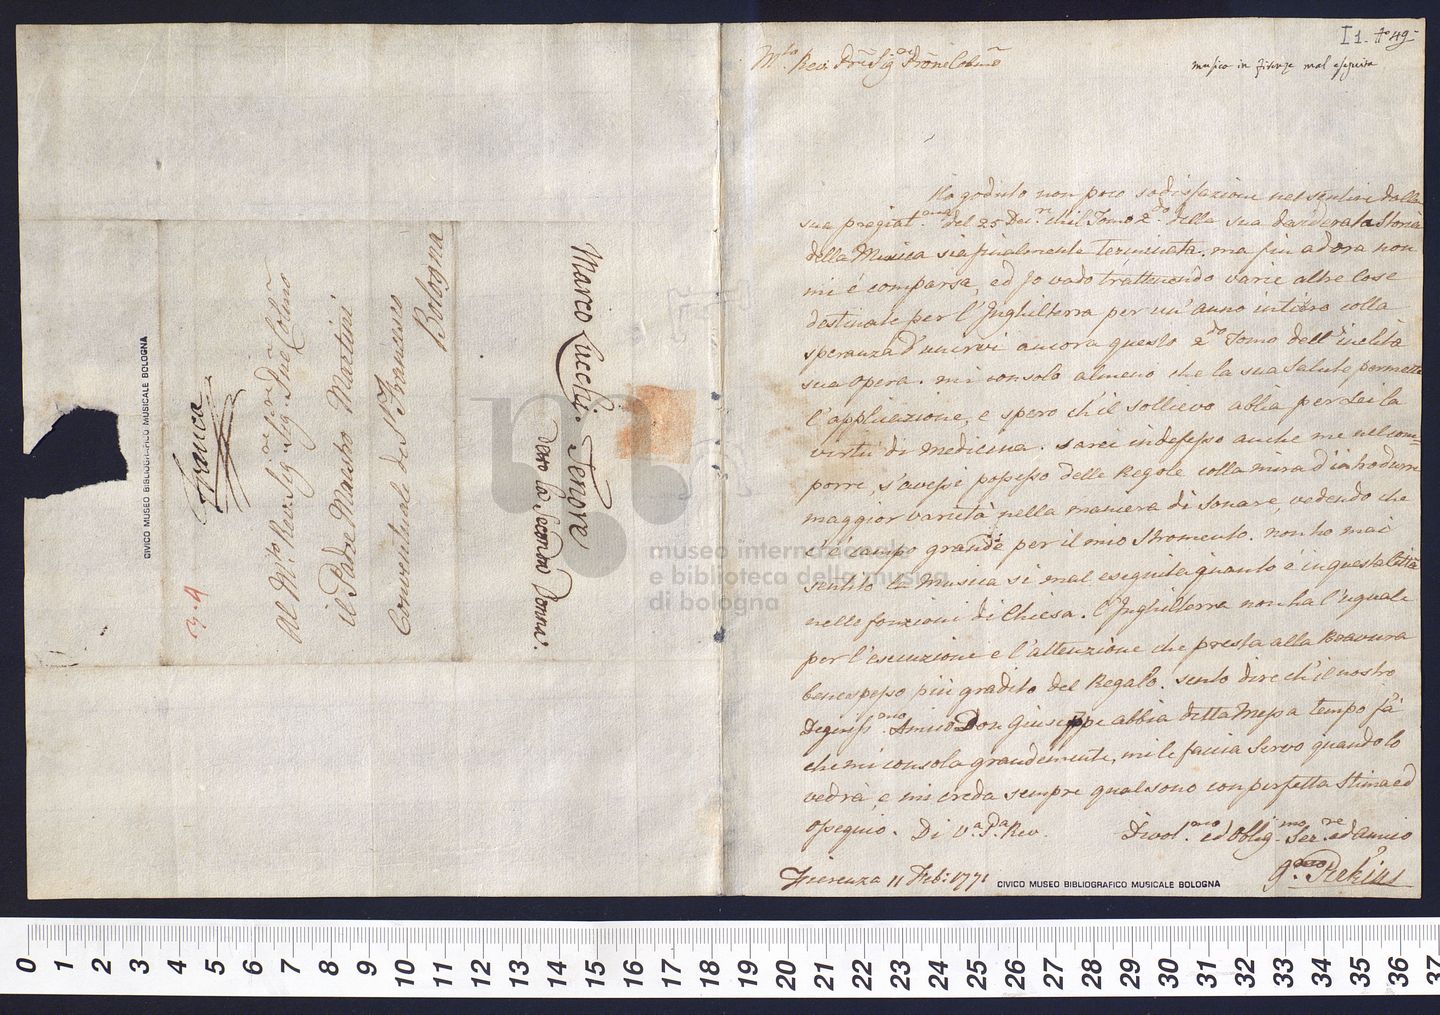 I.1. 49
musica in firenze mal eseguita
M.to Rev. Pre Sig.re Prone Colmo
Ho goduto non poco sodisfazione nel sentire dalla
sua pregiat.ma del 25 Dec.re ch'il Tomo 2.do della sua desiderata Storia
della Musica sia finalmente terminata. ma fin ad ora non
mi é comparsa, ed Jo vado trattenendo varie altre cose
destinate per l'Inghilterra per un'anno intiero colla
speranza d'unirvi ancora questo 2.do Tomo dell'inclita
sua opera. mi consolo almeno che la sua salute permette
l'applicazione, e spero ch'il sollievo abbia per Lei la
virtù di medicina. sarei indefesso anche me nel com=
porre, s'avessi possesso delle Regole colla mira d'introdurre
maggior varietà nella maniera di sonare, vedendo che
c'é campo grande per il mio stromento. non ho mai
sentito la musica si mal eseguita quanto é in questa Città
nelle fonzioni di Chiesa. l'Inghilterra non ha l'uguale
per l'esecuzione e l'attenzione che presta alla Bravura
bene spesso più gradito del Regalo. sento dire ch'il nostro
Degniss.mo Amico Don Giuseppe abbia detta Messa tempo fà
che mi consola grandemente, mi le faccia servo quando lo
vedrà, e mi creda sempre qual sono con perfetta stima ed
ossequio. Di V.a P.a Rev.
Divol.mo ed Oblig.mo Ser.re ed amico
Fiorenza 11 Feb: 1771
CIVICO MUSEO BIBLIOGRAFICO MUSICALE BOLOGNA
Franca
Al M.to Rev. Sig.re Sig. Pne Colmo
il Padre Maestro Martini
Conventuale di S. Francesco
Bologna
Marco Lucchi. Tenore
Dove la Seconda Donna.
CIVICO MUSEO BIBLIOGRAFICO MUSICALE BOLOGNA
museo internazionale
e biblioteca della musica
di bologna
0 1 2 3 4 5 6 7 8 9 10 11 12 13 14 15 16 17 18 19 20 21 22 23 24 25 26 27 28 29 30 31 32 33 34 35 36 37